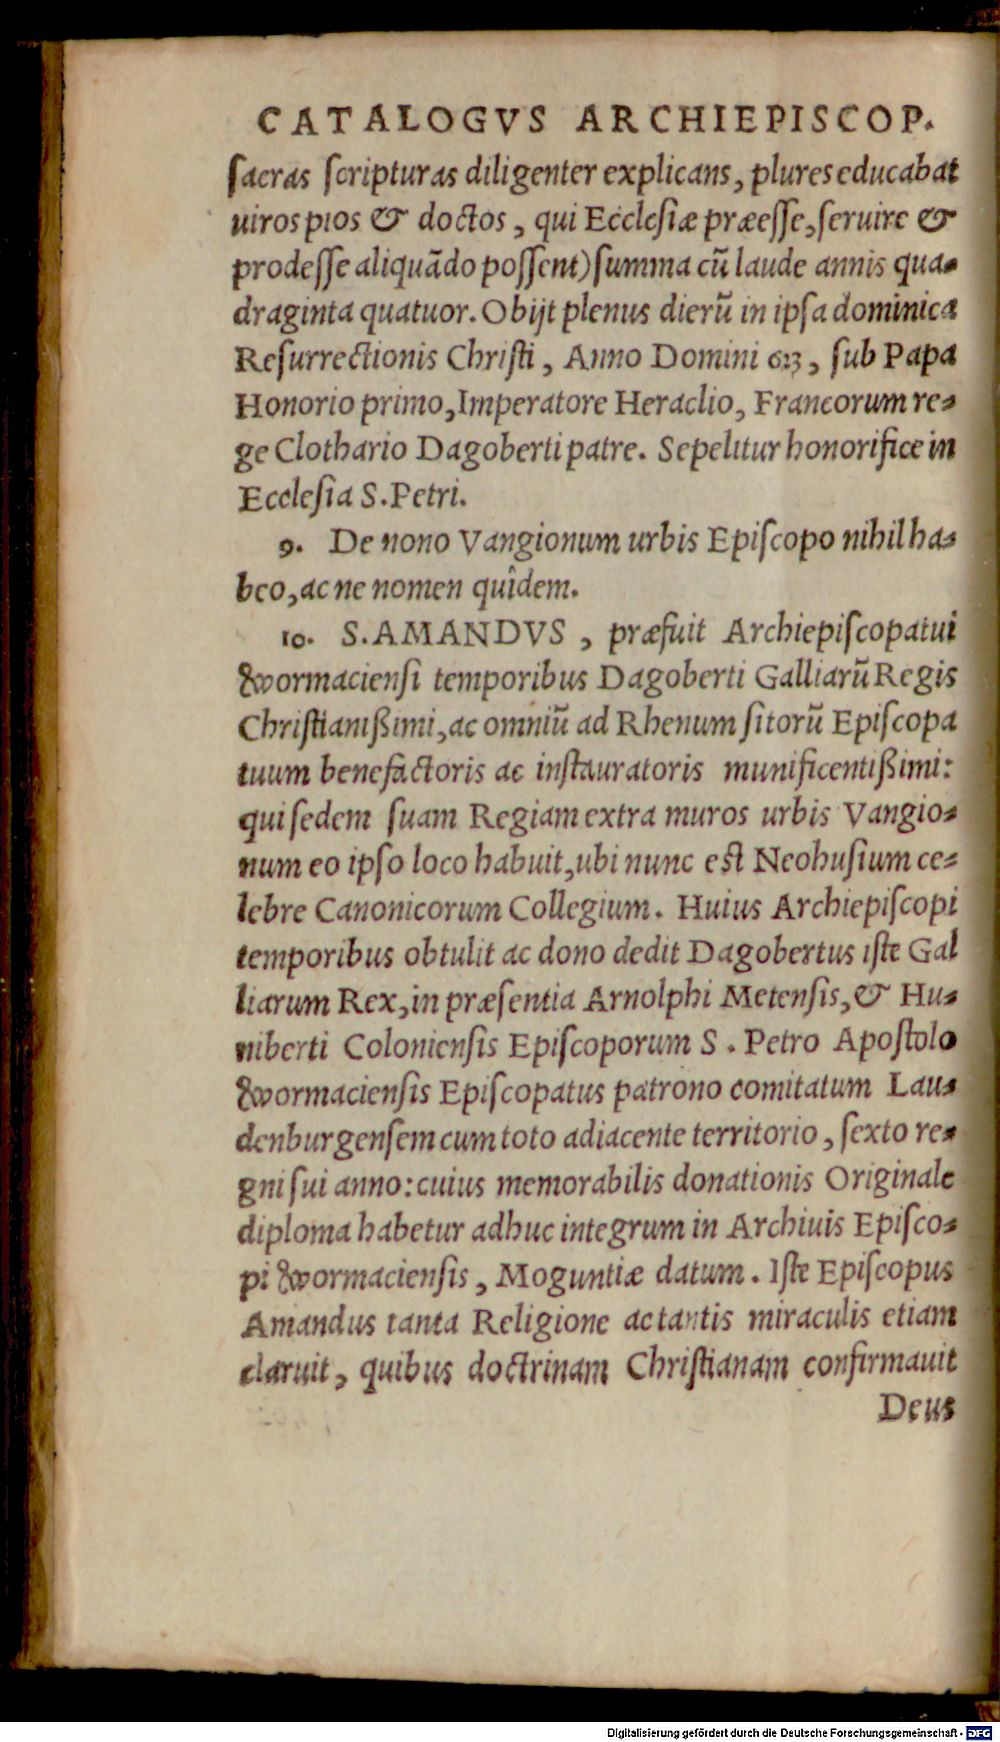 CATALOGVS ARCHIEPISCOP.
sacras scripturas diligenter explicans, plures educabat
uiros pios & doctos, qui Ecclesiæ præesse, seruire &
prodesse aliquãdo possent) summa cũ laude annis qua-
draginta quatuor. Obijt plenus dierũ in ipsa dominica
Resurrectionis Christi, Anno Domini 613, sub Papa
Honorio primo, Imperatore Heraclio, Francorum re-
ge Clothario Dagoberti patre. Sepelitur honorifice in
Ecclesia S. Petri.
9. De nono Vangionum urbis Episcopo nihil ha-
beo, ac ne nomen quidem.
10. S. AMANDVS, præfuit Archiepiscopatui
Wormaciensi temporibus Dagoberti Galliarũ Regis
Christianißimi, ac omniũ ad Rhenum sitorũ Episcopa
tuum benefactoris ac instauratoris munificentißimi:
qui sedem suam Regiam extra muros urbis Vangio-
num eo ipso loco habuit, ubi nunc est Neohusium ce-
lebre Canonicorum Collegium. Huius Archiepiscopi
temporibus obtulit ac dono dedit Dagobertus iste Gal
liarum Rex, in præsentia Arnolphi Metensis, & Hu-
niberti Coloniensis Episcoporum S. Petro Apostolo
Wormaciensis Episcopatus patrono comitatum Lau-
denburgensem cum toto adiacente territorio, sexto re-
gni sui anno: cuius memorabilis donationis Originale
diploma habetur adhuc integrum in Archiuis Episco-
pi Wormaciensis, Moguntiæ datum. Iste Episcopus
Amandus tanta Religione ac tantis miraculis etiam
claruit, quibus doctrinam Christianam confirmauit
Deus
Digitalisierung gefördert durch die Deutsche Forschungsgemeinschaft - DFG